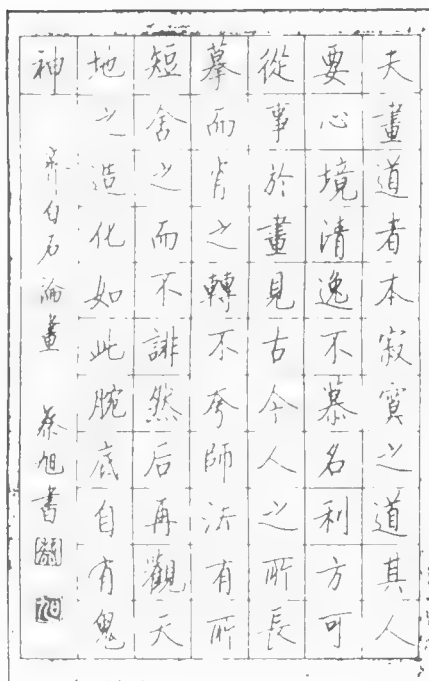 夫畫道者本寂寞之道其人
要心境清逸不慕名利方可
從事於畫見古今人之所長
摹而肖之轉不夸師法有所
短舍之而不誹然后再觀天
地之造化如此腕底自有鬼
神 齊白石論畫 蔡旭書 蔡 旭